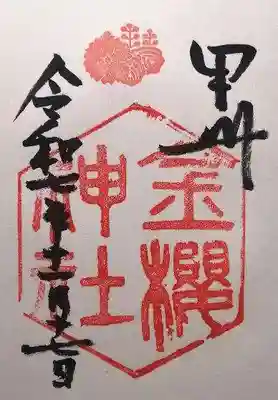 甲州
金櫻
神社
令和七年十一月十七日